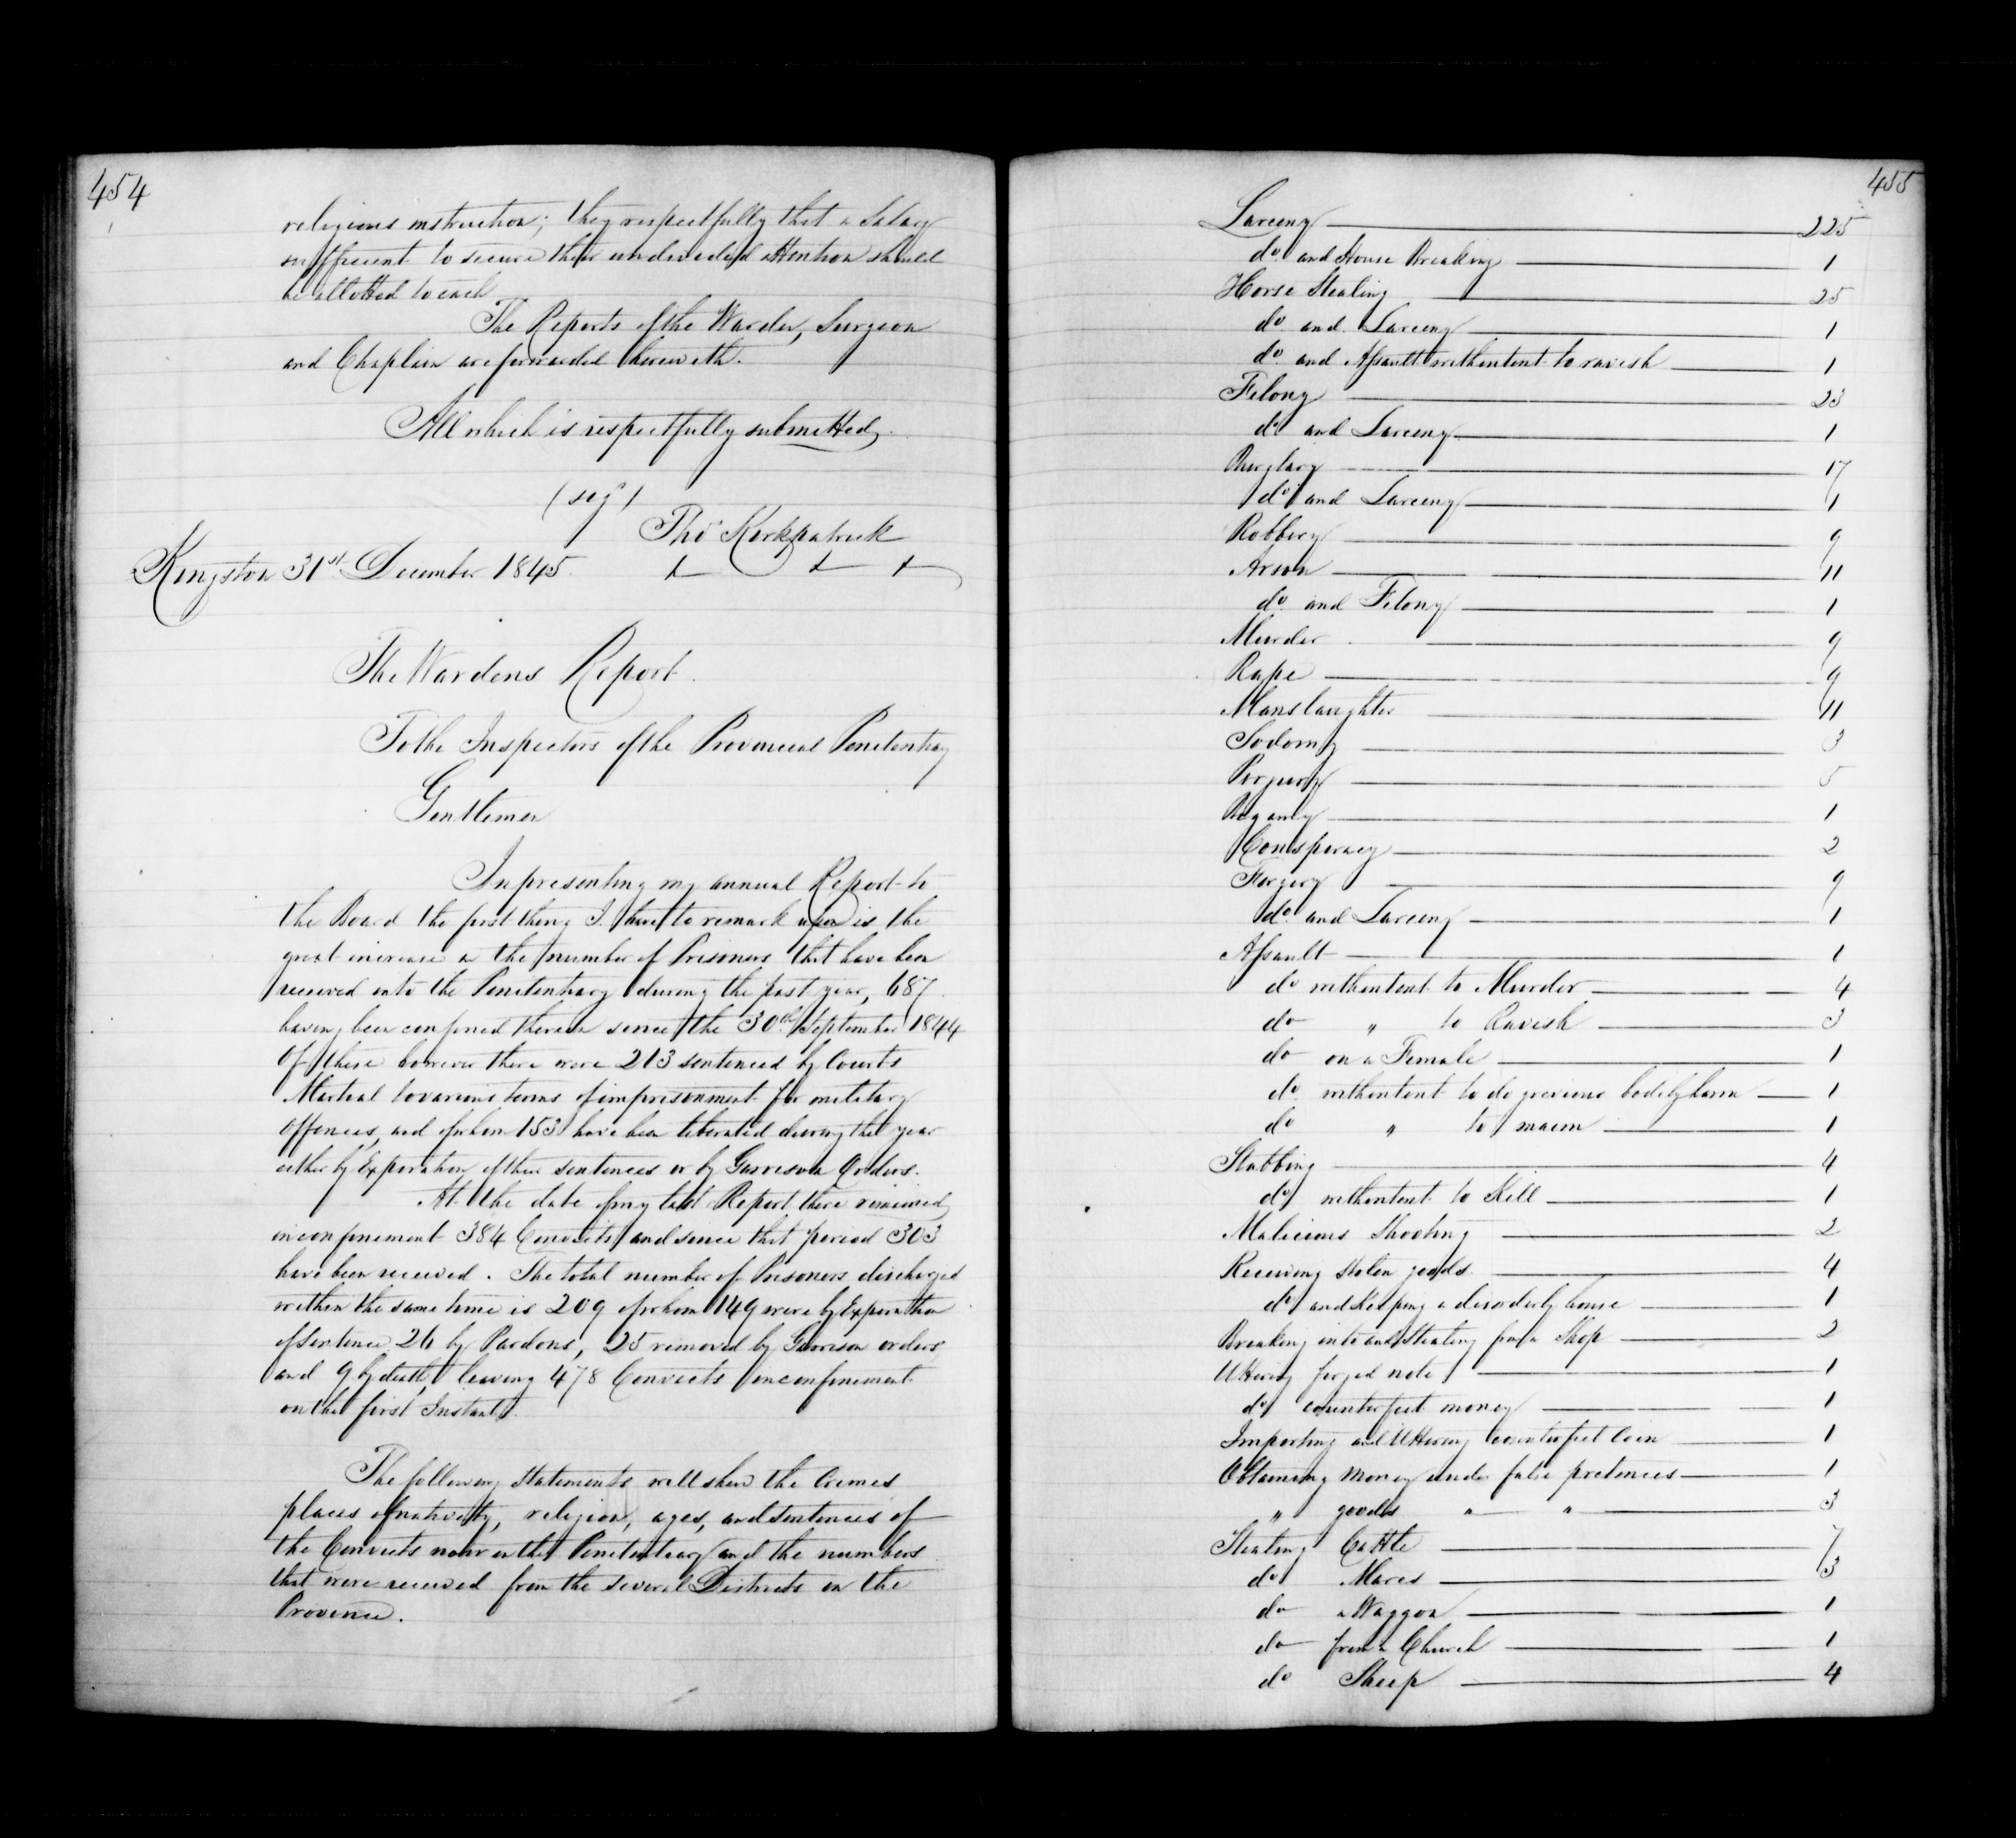 454
religious instruction; they respectfully that a Salary
sufficient to secure their undivided attention should
be allotted to each
The Reports of the Warden, Surgeon
and Chaplain are forwarded herewith.
All which is respectfully submitted.
(sigd)
Thos Kirkpatrick
Kingston 31st December 1845.
The Wardens Report.
To the Inspectors of the Provincial Penitentiary
Gentlemen
In presenting my annual Report to
the Board the first thing I have to remark upon is the
great increase in the number of Prisoners that have been
received into the Penitentiary during the past year, 687
having been confined therein since the 30th September 1844
Of these however there were 213 sentenced by Courts
Martial to various terms of imprisonment for military
offences, and of whom 153 have been liberated during the year
either by Expiration of their sentences or by Garrison Orders.
At the date of my last Report there remained
in confinement 384 Convicts and since that period 303
have been received. The total number of Prisoners discharged
within the same time is 209 of whom 149 were by Expiration
of Sentence 26 by Pardons, 25 removed by Garrison orders
and 9 by death, leaving 478 Convicts in confinement
on the first Instant.
The following Statements will shew the Crimes
places of nativity, religion, ages, and sentences of
the Convicts now in the Penitentiary and the numbers
that were received from the several Districts in the
Province.
455
Larceny 225
do and House Breaking 1
Horse Stealing 25
do and Larceny 1
do and Assault with intent to ravish 1
Felony 23
do and Larceny 1
Burglary 17
do and Larceny 1
Robbery 9
Arson 11
do and Felony 1
Murder 9
Rape 9
Manslaughter 11
Sodomy 3
Perjury 5
Bigamy 1
Conspiracy 2
Forgery 9
do and Larceny 1
Assault 1
do with intent to Murder 4
do " to Ravish 3
do on a Female 1
do with intent to do grevious bodily harm 1
do " to maim 1
Stabbing 4
do with intent to Kill 1
Malicious Shooting 2
Receiving stolen goods 4
do and Keeping a disorderly house 1
Breaking into and Stealing from a Shop 2
Uttering forged note 1
do counterfeit money 1
Importing and Uttering counterfeit Coin 1
Obtaining Money under false pretences 1
" goods " " 3
Stealing Cattle 7
do Mares 3
do a Waggon 1
do from a Church 1
do Sheep 4